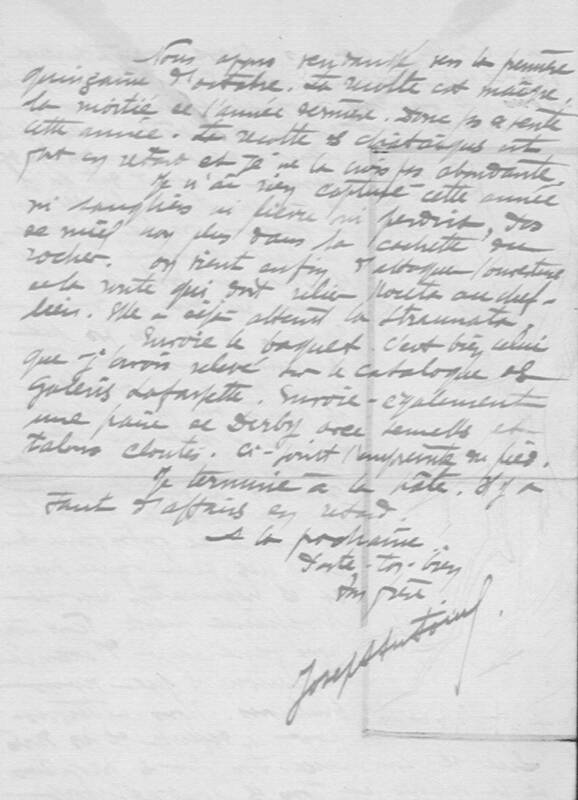 Nous avons vendangé vers la première
quinzaine d'octobre. La récolte est maigre,
la moitié de l'année dernière. Donc pas de vente
cette année. La récolte de châtaignes est
fort en retard et je ne la crois pas abondante.
Je n'ai rien capturé cette année
ni sangliers ni lièvre ni perdrix, Pas
de miel non plus dans la cachette du
rocher. On vient enfin d'attaquer l'ouverture
de la route qui doit relier au chef-
lieu. Elle a déjà atteint la Strennata.
Envoie le baquet c'est bien celui
que j'avois relevé sur le catalogue des
Galeries Lafayette. Envoie-également
une paire de Derby avec semelles et
talons cloutés. Ci-joint l'empreinte du pied.
Je termine à la hâte. Il y a
tant d'affaires en retard
A la prochaine
Porte-toi-bien
Ton frère
Joseph Antoine